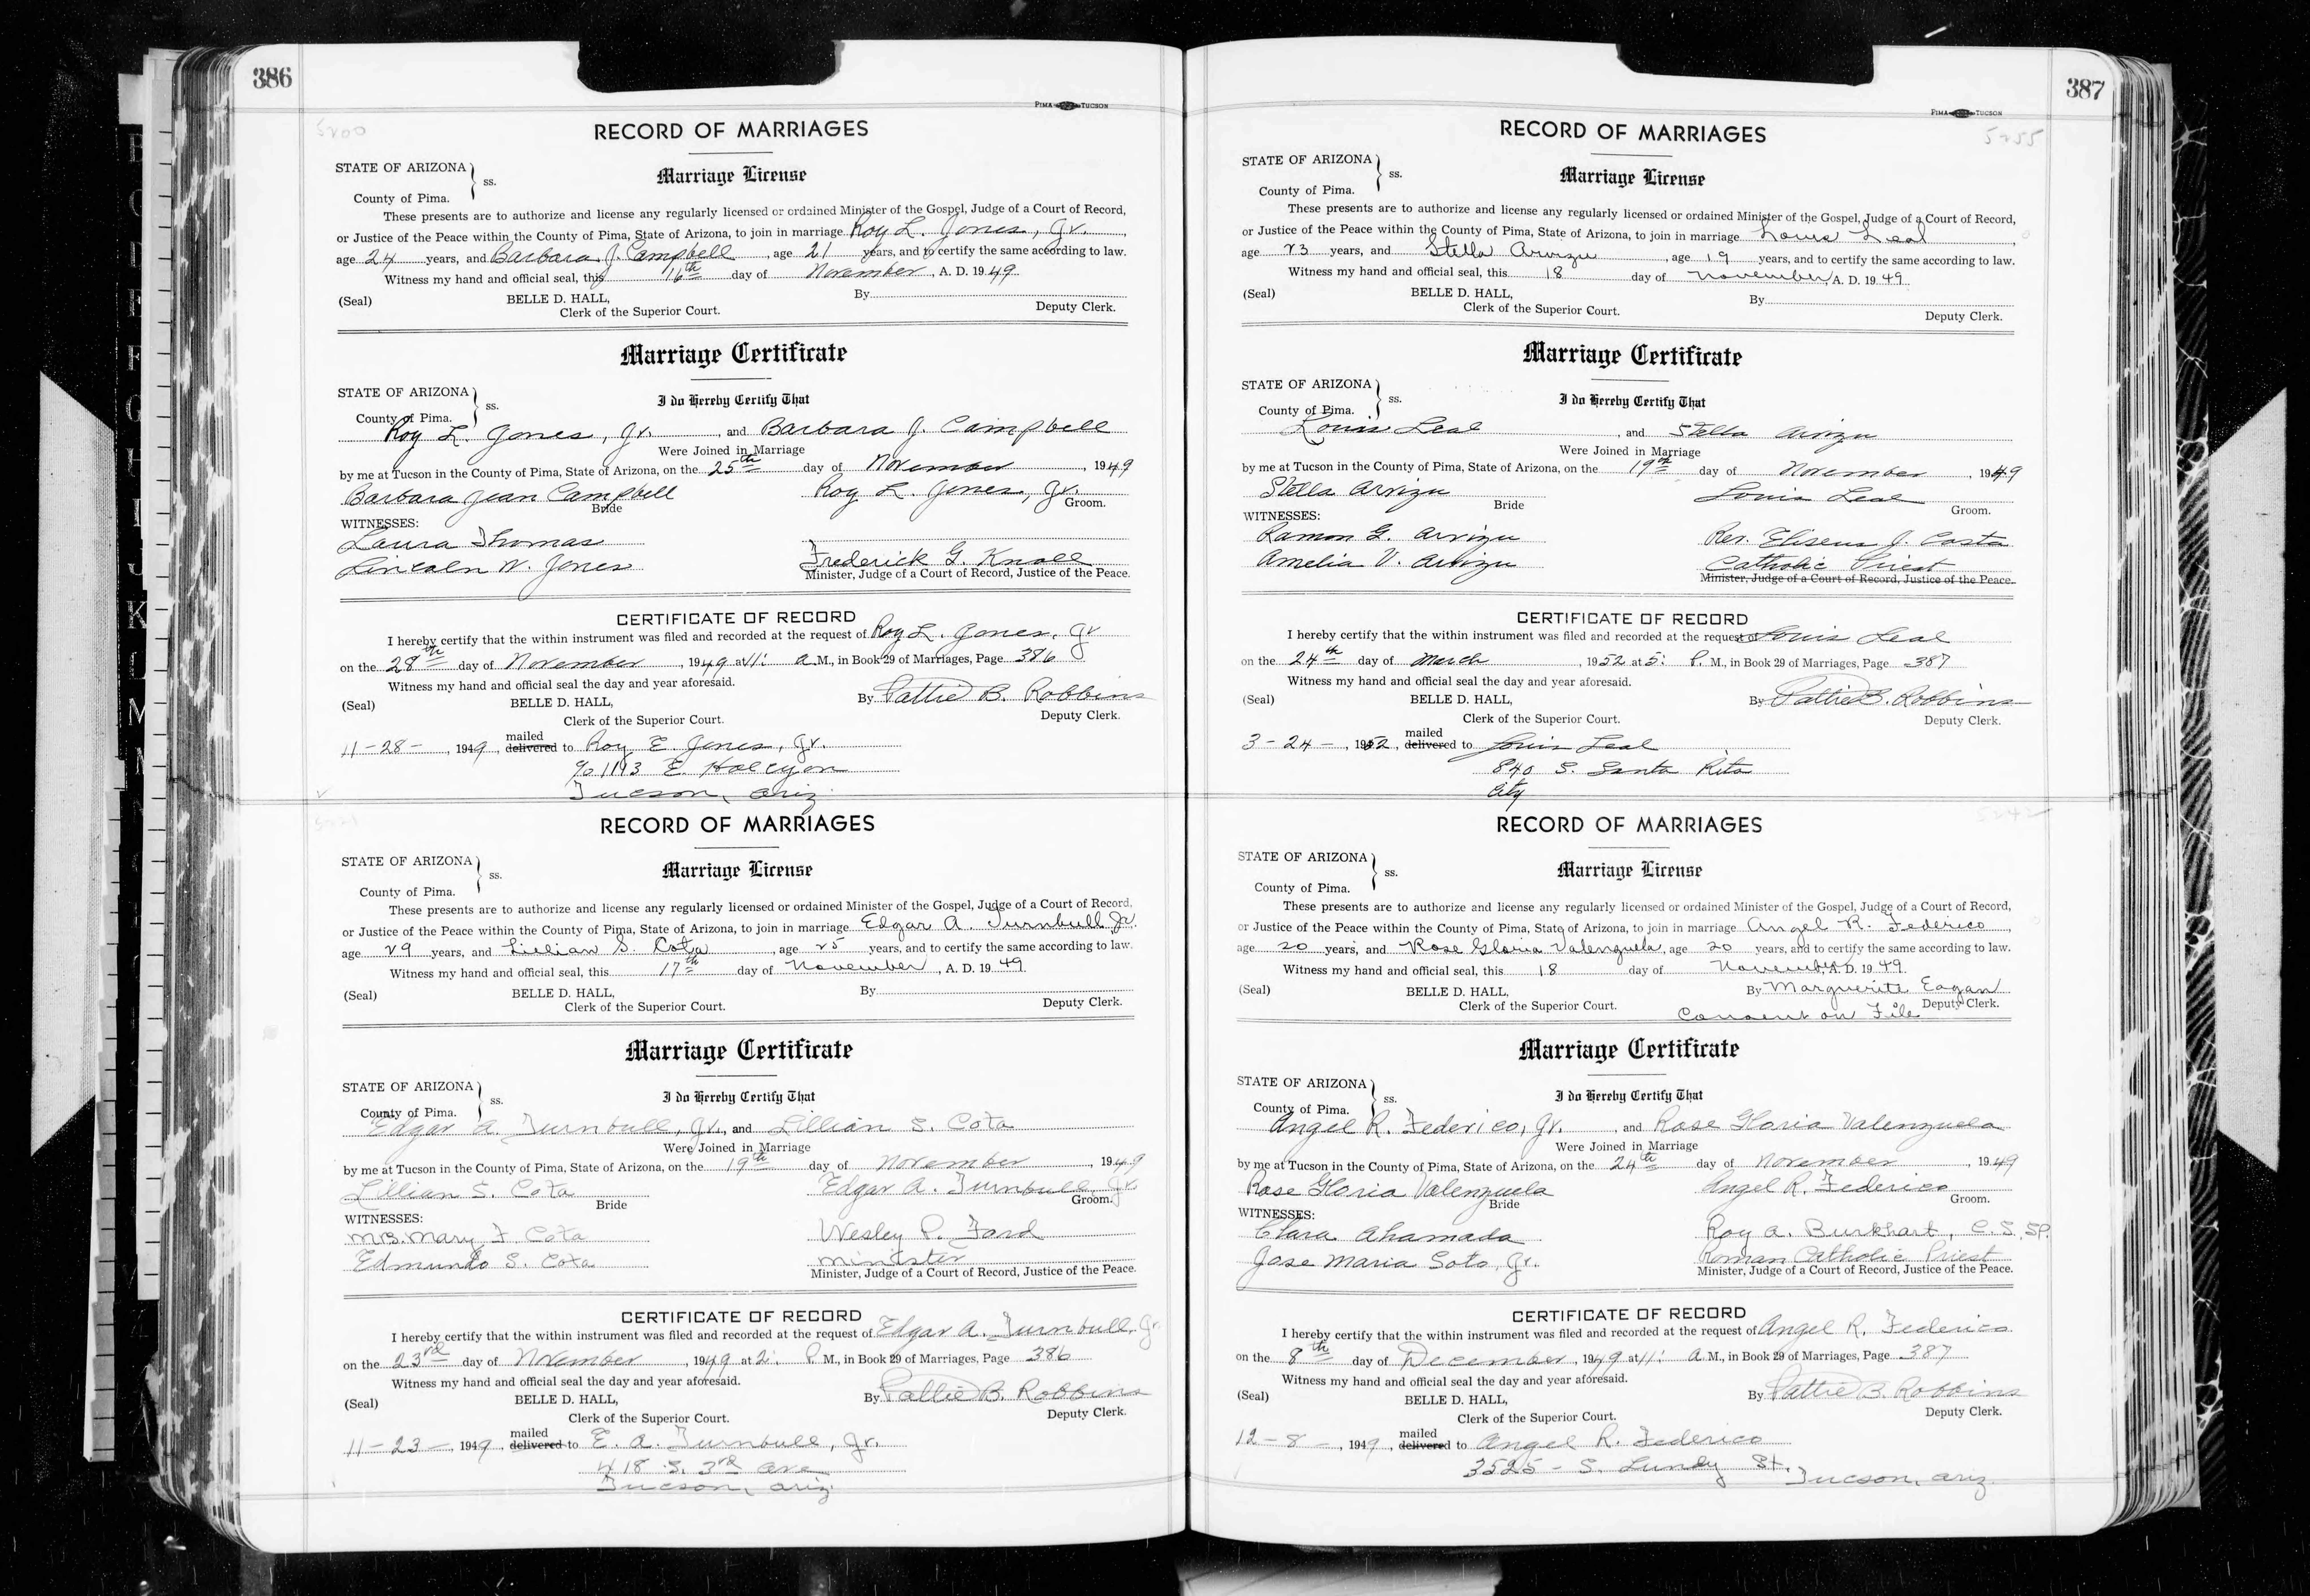 386
PIMA TUCSON
5200
RECORD OF MARRIAGES
STATE OF ARIZONA
ss.
County of Pima.
Marriage License
These presents are to authorize and license any regularly licensed or ordained Minister of the Gospel, Judge of a Court of Record,
or Justice of the Peace within the County of Pima, State of Arizona, to join in marriage Roy L. Jones, Jr.
age 24 years, and Barbara J. Campbell, age 21 years, and to certify the same according to law.
Witness my hand and official seal, this 16th day of November, A. D. 1949
(Seal) BELLE D. HALL, By
Clerk of the Superior Court. Deputy Clerk.
Marriage Certificate
STATE OF ARIZONA
ss.
County of Pima.
I do Hereby Certify That
Roy L. Jones, Jr., and Barbara J. Campbell
Were Joined in Marriage
by me at Tucson in the County of Pima, State of Arizona, on the 25th day of November, 1949
Barbara Jean Campbell Roy L. Jones, Jr.
Bride Groom.
WITNESSES:
Laura Thomas
Lincoln W. Jones Frederick G. Knoll
Minister, Judge of a Court of Record, Justice of the Peace.
CERTIFICATE OF RECORD
I hereby certify that the within instrument was filed and recorded at the request of Roy L. Jones, Jr
on the 28th day of November, 1949 at 11: A M., in Book 29 of Marriages, Page 386
Witness my hand and official seal the day and year aforesaid.
(Seal) BELLE D. HALL, By Pattie B. Robbins
Clerk of the Superior Court. Deputy Clerk.
11-28-, 1949, mailed delivered to Roy E. Jones, Jr.
c/o 1113 E. Halcyon
Tucson, Ariz.
RECORD OF MARRIAGES
STATE OF ARIZONA
ss.
County of Pima.
Marriage License
These presents are to authorize and license any regularly licensed or ordained Minister of the Gospel, Judge of a Court of Record,
or Justice of the Peace within the County of Pima, State of Arizona, to join in marriage Edgar A. Turnbull Jr.
age 29 years, and Lillian S. Cota, age 25 years, and to certify the same according to law.
Witness my hand and official seal, this 17th day of November, A. D. 1949
(Seal) BELLE D. HALL, By
Clerk of the Superior Court. Deputy Clerk.
Marriage Certificate
STATE OF ARIZONA
ss.
County of Pima.
I do Hereby Certify That
Edgar A. Turnbull, Jr., and Lillian S. Cota
Were Joined in Marriage
by me at Tucson in the County of Pima, State of Arizona, on the 19th day of November, 1949
Lillian S. Cota Edgar A. Turnbull, Jr.
Bride Groom.
WITNESSES:
Mrs. Mary F. Cota Wesley P. Ford
Edmundo S. Cota Minister
Minister, Judge of a Court of Record, Justice of the Peace.
CERTIFICATE OF RECORD
I hereby certify that the within instrument was filed and recorded at the request of Edgar A. Turnbull, Jr.
on the 23rd day of November, 1949 at 2: P. M., in Book 29 of Marriages, Page 386
Witness my hand and official seal the day and year aforesaid.
(Seal) BELLE D. HALL, By Pattie B. Robbins
Clerk of the Superior Court. Deputy Clerk.
11-23-, 1949, mailed delivered to E. A. Turnbull, Jr.
418 S. 3rd Ave
Tucson, Ariz.
387
PIMA TUCSON
5255
RECORD OF MARRIAGES
STATE OF ARIZONA
ss.
County of Pima.
Marriage License
These presents are to authorize and license any regularly licensed or ordained Minister of the Gospel, Judge of a Court of Record,
or Justice of the Peace within the County of Pima, State of Arizona, to join in marriage Louis Leal
age 23 years, and Stella Arvizu, age 19 years, and to certify the same according to law.
Witness my hand and official seal, this 18 day of November, A. D. 1949
(Seal) BELLE D. HALL, By
Clerk of the Superior Court. Deputy Clerk.
Marriage Certificate
STATE OF ARIZONA
ss.
County of Pima.
I do Hereby Certify That
Louis Leal, and Stella Arvizu
Were Joined in Marriage
by me at Tucson in the County of Pima, State of Arizona, on the 19th day of November, 1949
Stella Arvizu Louis Leal
Bride Groom.
WITNESSES:
Ramon G. Arvizu Rev. Eliseus J. Costa
Amelia V. Arvizu Catholic Priest
Minister, Judge of a Court of Record, Justice of the Peace.
CERTIFICATE OF RECORD
I hereby certify that the within instrument was filed and recorded at the request of Louis Leal
on the 24th day of March, 1952 at 5: P. M., in Book 29 of Marriages, Page 387
Witness my hand and official seal the day and year aforesaid.
(Seal) BELLE D. HALL, By Pattie B. Robbins
Clerk of the Superior Court. Deputy Clerk.
3-24-, 1952, mailed delivered to Louis Leal
840 S. Santa Rita
City
5242
RECORD OF MARRIAGES
STATE OF ARIZONA
ss.
County of Pima.
Marriage License
These presents are to authorize and license any regularly licensed or ordained Minister of the Gospel, Judge of a Court of Record,
or Justice of the Peace within the County of Pima, State of Arizona, to join in marriage Angel R. Federico,
age 20 years, and Rose Gloria Valenzuela, age 20 years, and to certify the same according to law.
Witness my hand and official seal, this 18 day of November, A. D. 1949
(Seal) BELLE D. HALL, By Marguerite Eagan
Clerk of the Superior Court. Deputy Clerk.
Consent on File
Marriage Certificate
STATE OF ARIZONA
ss.
County of Pima.
I do Hereby Certify That
Angel R. Federico, Jr., and Rose Gloria Valenzuela
Were Joined in Marriage
by me at Tucson in the County of Pima, State of Arizona, on the 24th day of November, 1949
Rose Gloria Valenzuela Angel R. Federico
Bride Groom.
WITNESSES:
Clara Ahamada Roy A. Burkhart, C.S.SP.
Jose Maria Soto, Jr. Roman Catholic Priest
Minister, Judge of a Court of Record, Justice of the Peace.
CERTIFICATE OF RECORD
I hereby certify that the within instrument was filed and recorded at the request of Angel R. Federico
on the 8th day of December, 1949 at 11: A M., in Book 29 of Marriages, Page 387
Witness my hand and official seal the day and year aforesaid.
(Seal) BELLE D. HALL, By Pattie B. Robbins
Clerk of the Superior Court. Deputy Clerk.
12-8-, 1949, mailed delivered to Angel R. Federico
3525 - S. Lundy St.
Tucson, Ariz.